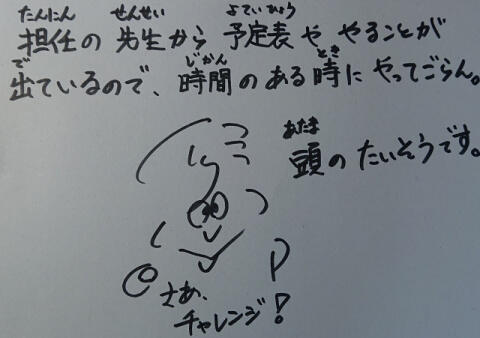 たんにん せんせい よていひょう
担任の先生から予定表ややることが
で じかん とき
出ているので、時間のある時にやってごらん。
あたま
頭のたいそうです。
さあ、
チャレンジ!